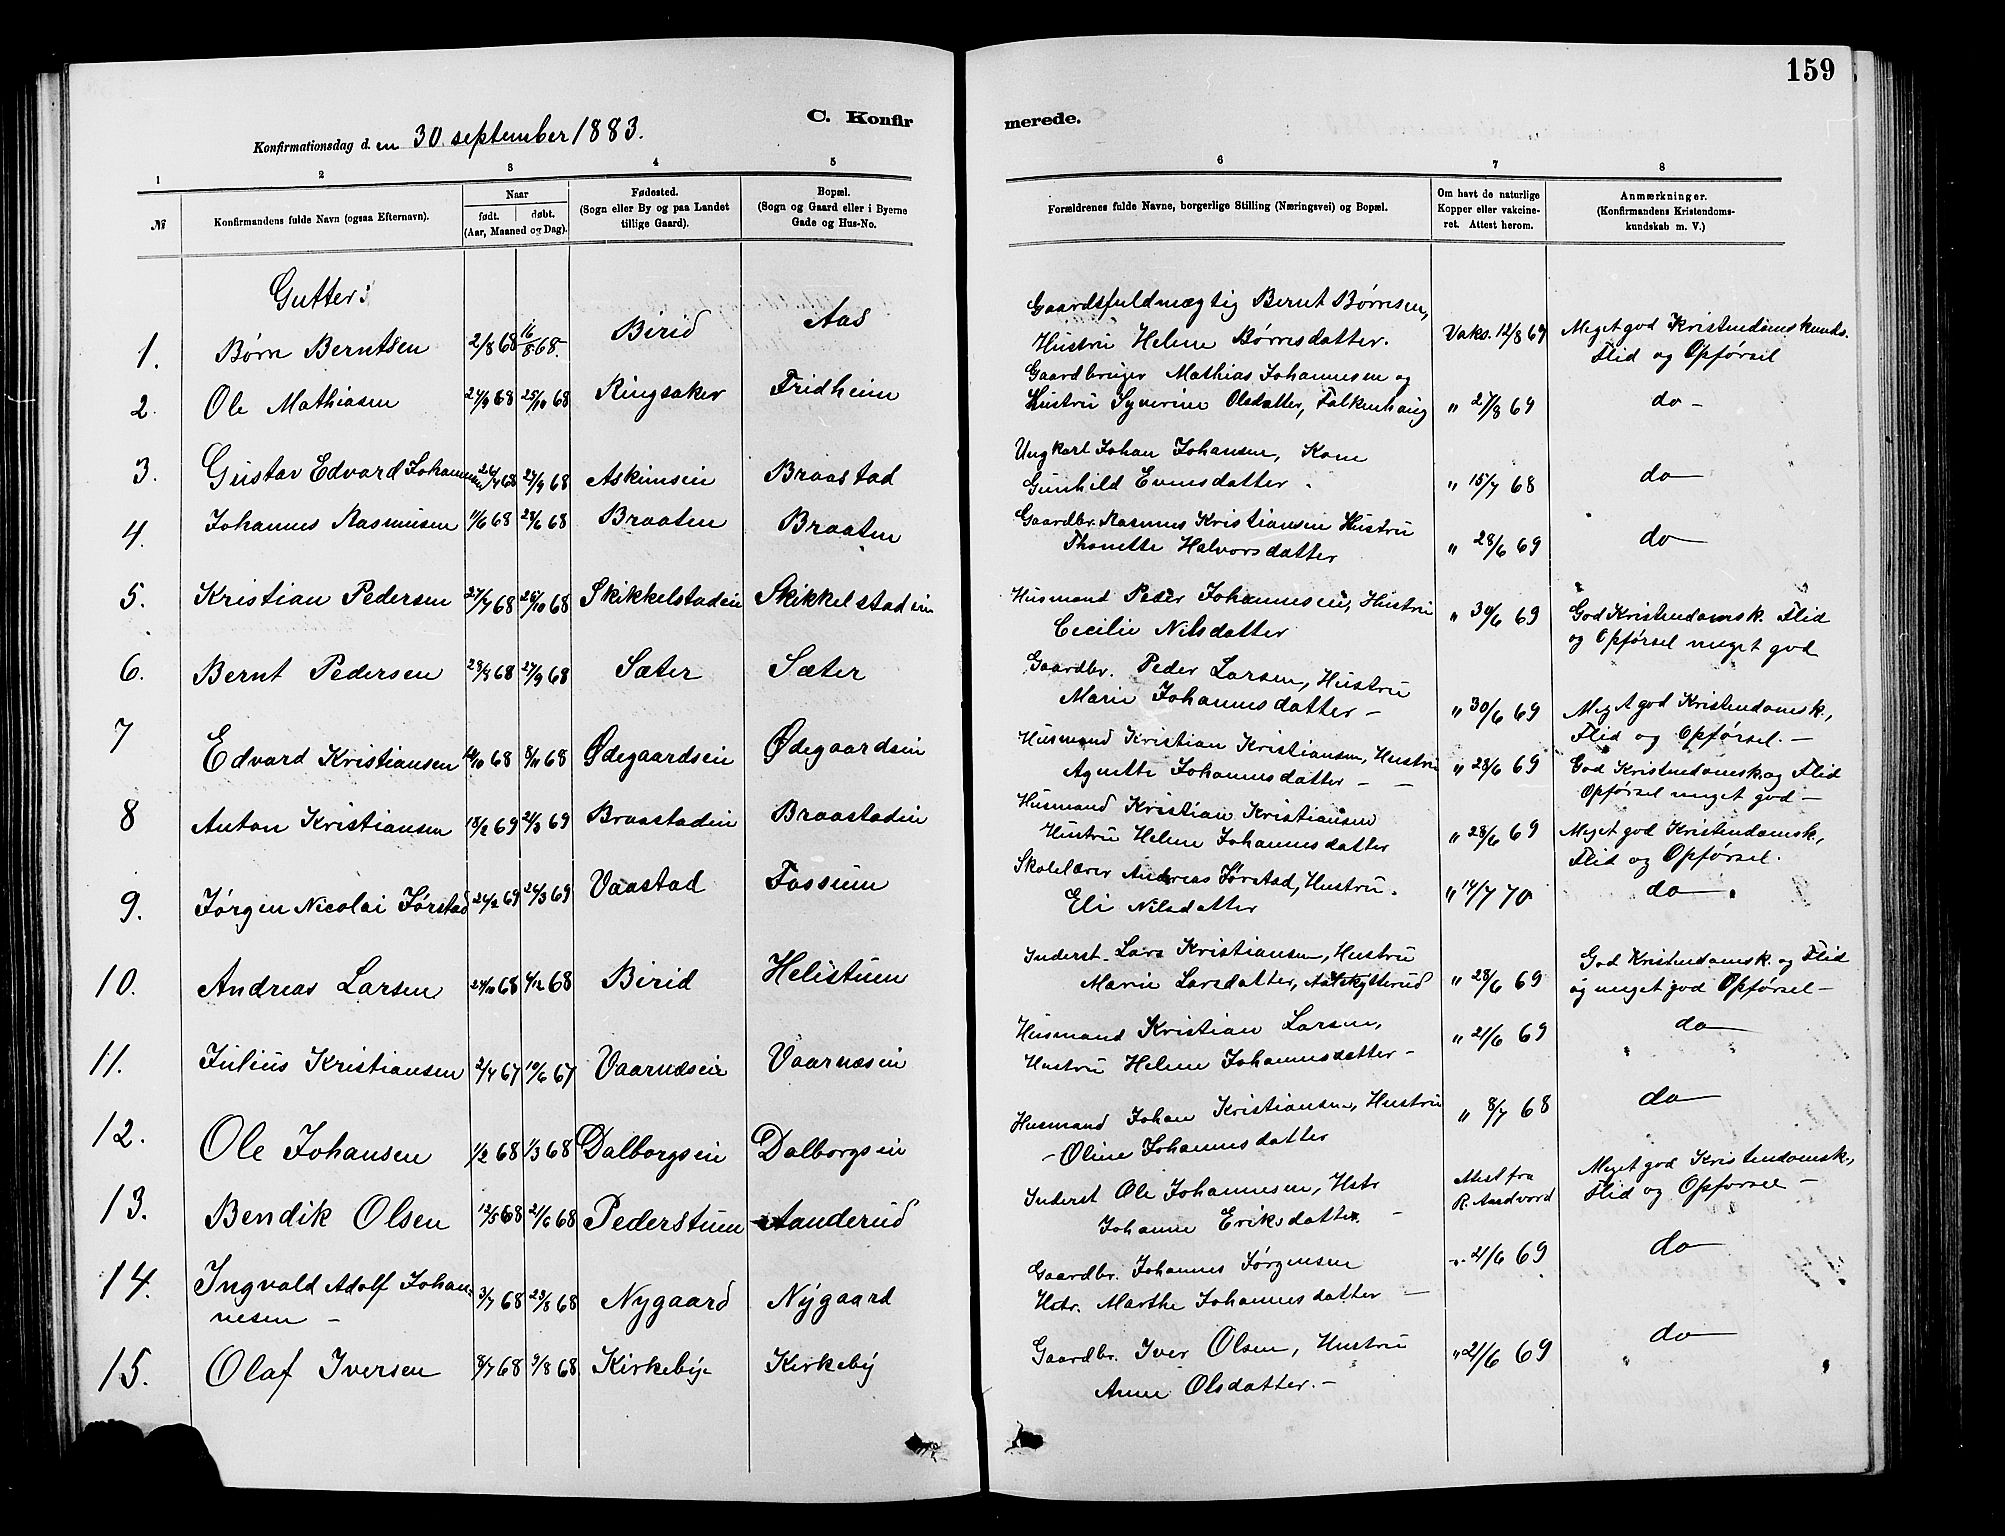 159
C. Konfirmerede.
Konfirmationsdag d. en 30. september 1883.
1 2 3 4 5 6 7 8
№
Konfirmandens fulde Navn (ogsaa Efternavn).
Naar
født. døbt.
(Aar, Maaned og Dag).
Fødested.
(Sogn eller By og paa Landet
tillige Gaard).
Bopæl.
(Sogn og Gaard eller i Byerne
Gade og Hus-No.
Forældrenes fulde Navne, borgerlige Stilling (Næringsvei) og Bopæl.
Om havt de naturlige
Kopper eller vakcine-
ret. Attest herom.
Anmærkninger.
(Konfirmandens Kristendoms-
kundskab m. V.)
Gutter:
1. Børn Berntsen 2/8 68 16/8 68. Birid Aas
Gaardsfuldmægtig Bernt Børresen,
Hustru Helene Børresdatter. Vaks. 12/8 69 Meget god Kristendomskunds.
Flid og Opførsel
2. Ole Mathiasen 24/9 68 25/10 68 Ringsaker Fridheim
Gaardbruger Mathias Johannesen og
Hustru Syverine Olsdatter, Falkenhaug " 27/8 69 do -
3. Gustav Edvard Johannesen 26/7 68 27/9 68 Askimsein Braastad
Ungkarl Johan Johansen, Kone
Gunhild Evensdatter. " 15/7 68 do
4. Johannes Rasmusen 11/6 68 28/6 68 Braaten Braaten
Gaardbr. Rasmus Kristiansen Hustru
Thonette Halvorsdatter " 28/6 69 do
5. Kristian Pedersen 27/7 68 26/10 68 Skikkelstadein Skikkelstadein
Husmand Peder Johannesen, Hustru
Cecilie Nilsdatter " 30/6 69 God Kristendomsk. Flid
og Opførsel meget god
6. Bernt Pedersen 28/8 68 27/9 68 Sæter Sæter
Gaardbr. Peder Larsen, Hustru
Marie Johannesdatter - " 30/6 69 Meget god Kristendomsk,
Flid og Opførsel. -
7 Edvard Kristiansen 14/10 68 8/11 68 Ødegaardsein Ødegaardsein
Husmand Kristian Kristiansen, Hustru
Agnette Johannesdatter - - " 28/6 69 God Kristendomsk. og Flid
Opførsel meget god -
8 Anton Kristiansen 18/2 69 21/3 69 Braastadein Braastadein
Husmand Kristian Kristiansen
Hustru Helene Johannesdatter " 28/6 69 Meget god Kristendomsk,
Flid og Opførsel.
9. Jørgen Nicolai Førstad 24/2 69 26/3 69 Vaastad Fossum
Skolelærer Andreas Førstad, Hustru.
Eli Nilsdatter " 14/7 70 do
10. Andreas Larsen 24/10 68 4/12 68 Birid Helistuen
Inderst. Lars Kristiansen, Hustru
Marie Larsdatter, " 28/6 69 God Kristendomsk. og Flid
og meget god Opførsel -
11. Julius Kristiansen 2/4 67 10/6 67 Vaarnæsein Vaarnæsein
Husmand Kristian Larsen,
Hustru Helene Johannesdatter - " 21/6 69 do
12. Ole Johansen 1/2 68 1/3 68 Dalborgsein Dalborgsein
Husmand Johan Kristiansen, Hustru
- Oline Johannesdatter " 8/7 68 do
13. Bendik Olsen 12/5 68 21/6 68 Pederstuen Aanderud
Inderst Ole Johannesen, Hstr
Johanne Eriksdatter. - Attest fra
R. Aandvord Meget god Kristendomsk,
Flid og Opførsel -
14. Ingvald Adolf Johan-
nesen - 3/7 68 23/8 68 Nygaard Nygaard
Gaardbr. Johannes Jørgensen
Hstr. Marthe Johannesdatter - " 21/6 69 do
15. Olaf Iversen 8/7 68 9/8 68 Kirkeby Kirkeby
Gaardbr. Iver Olsen, Hustru
Anne Olsdatter. - " 21/6 69 do